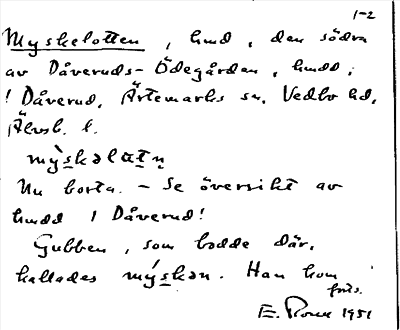 1-2
Myskelotten, hmd, den södra
av Dåveruds-Ödegården, hmdd,
! Dåverud, Ärtemarks sn. Vedbo hd,
Älvsb. l.
Nu borta. – Se översikt av
hmdd ! Dåverud!
Gubben, som bodde där,
kallades mýskən. Han kom
1951